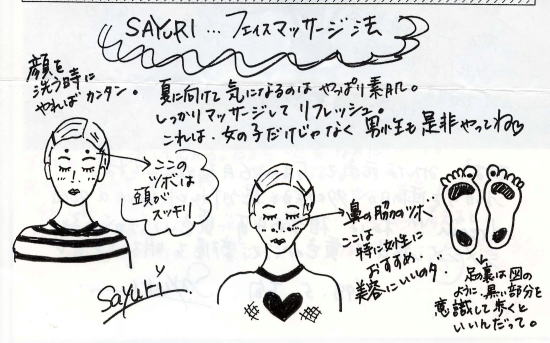 SAYURI… フェイスマッサージ法
顔を
洗う時に
やればカンタン。
夏に向けて 気になるのは やっぱり素肌。
しっかりマッサージして リフレッシュ。
これは、女の子だけじゃなく 男性も是非やってね♡
ここの
ツボは
頭が
スッキリ
鼻の脇のツボ
ここは
特に女性に
おすすめ。
美容にいいのダ。
Sayuri.
足の裏は図の
ように、黒い部分を
意識して歩くと
いいんだって。